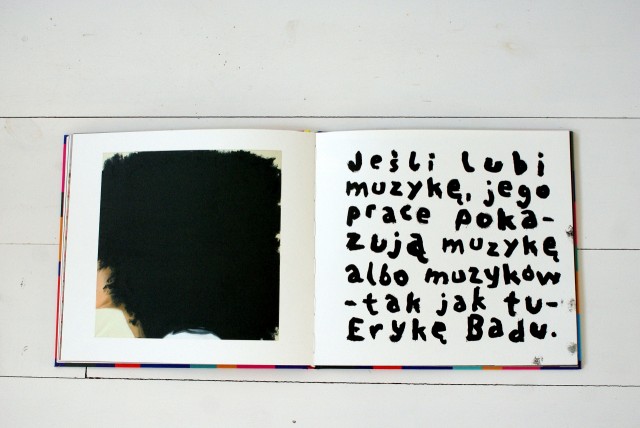 Jeśli lubi
muzykę, jego
prace poka-
zują muzykę
albo muzyków
-tak jak tu-
Erykę Badu.